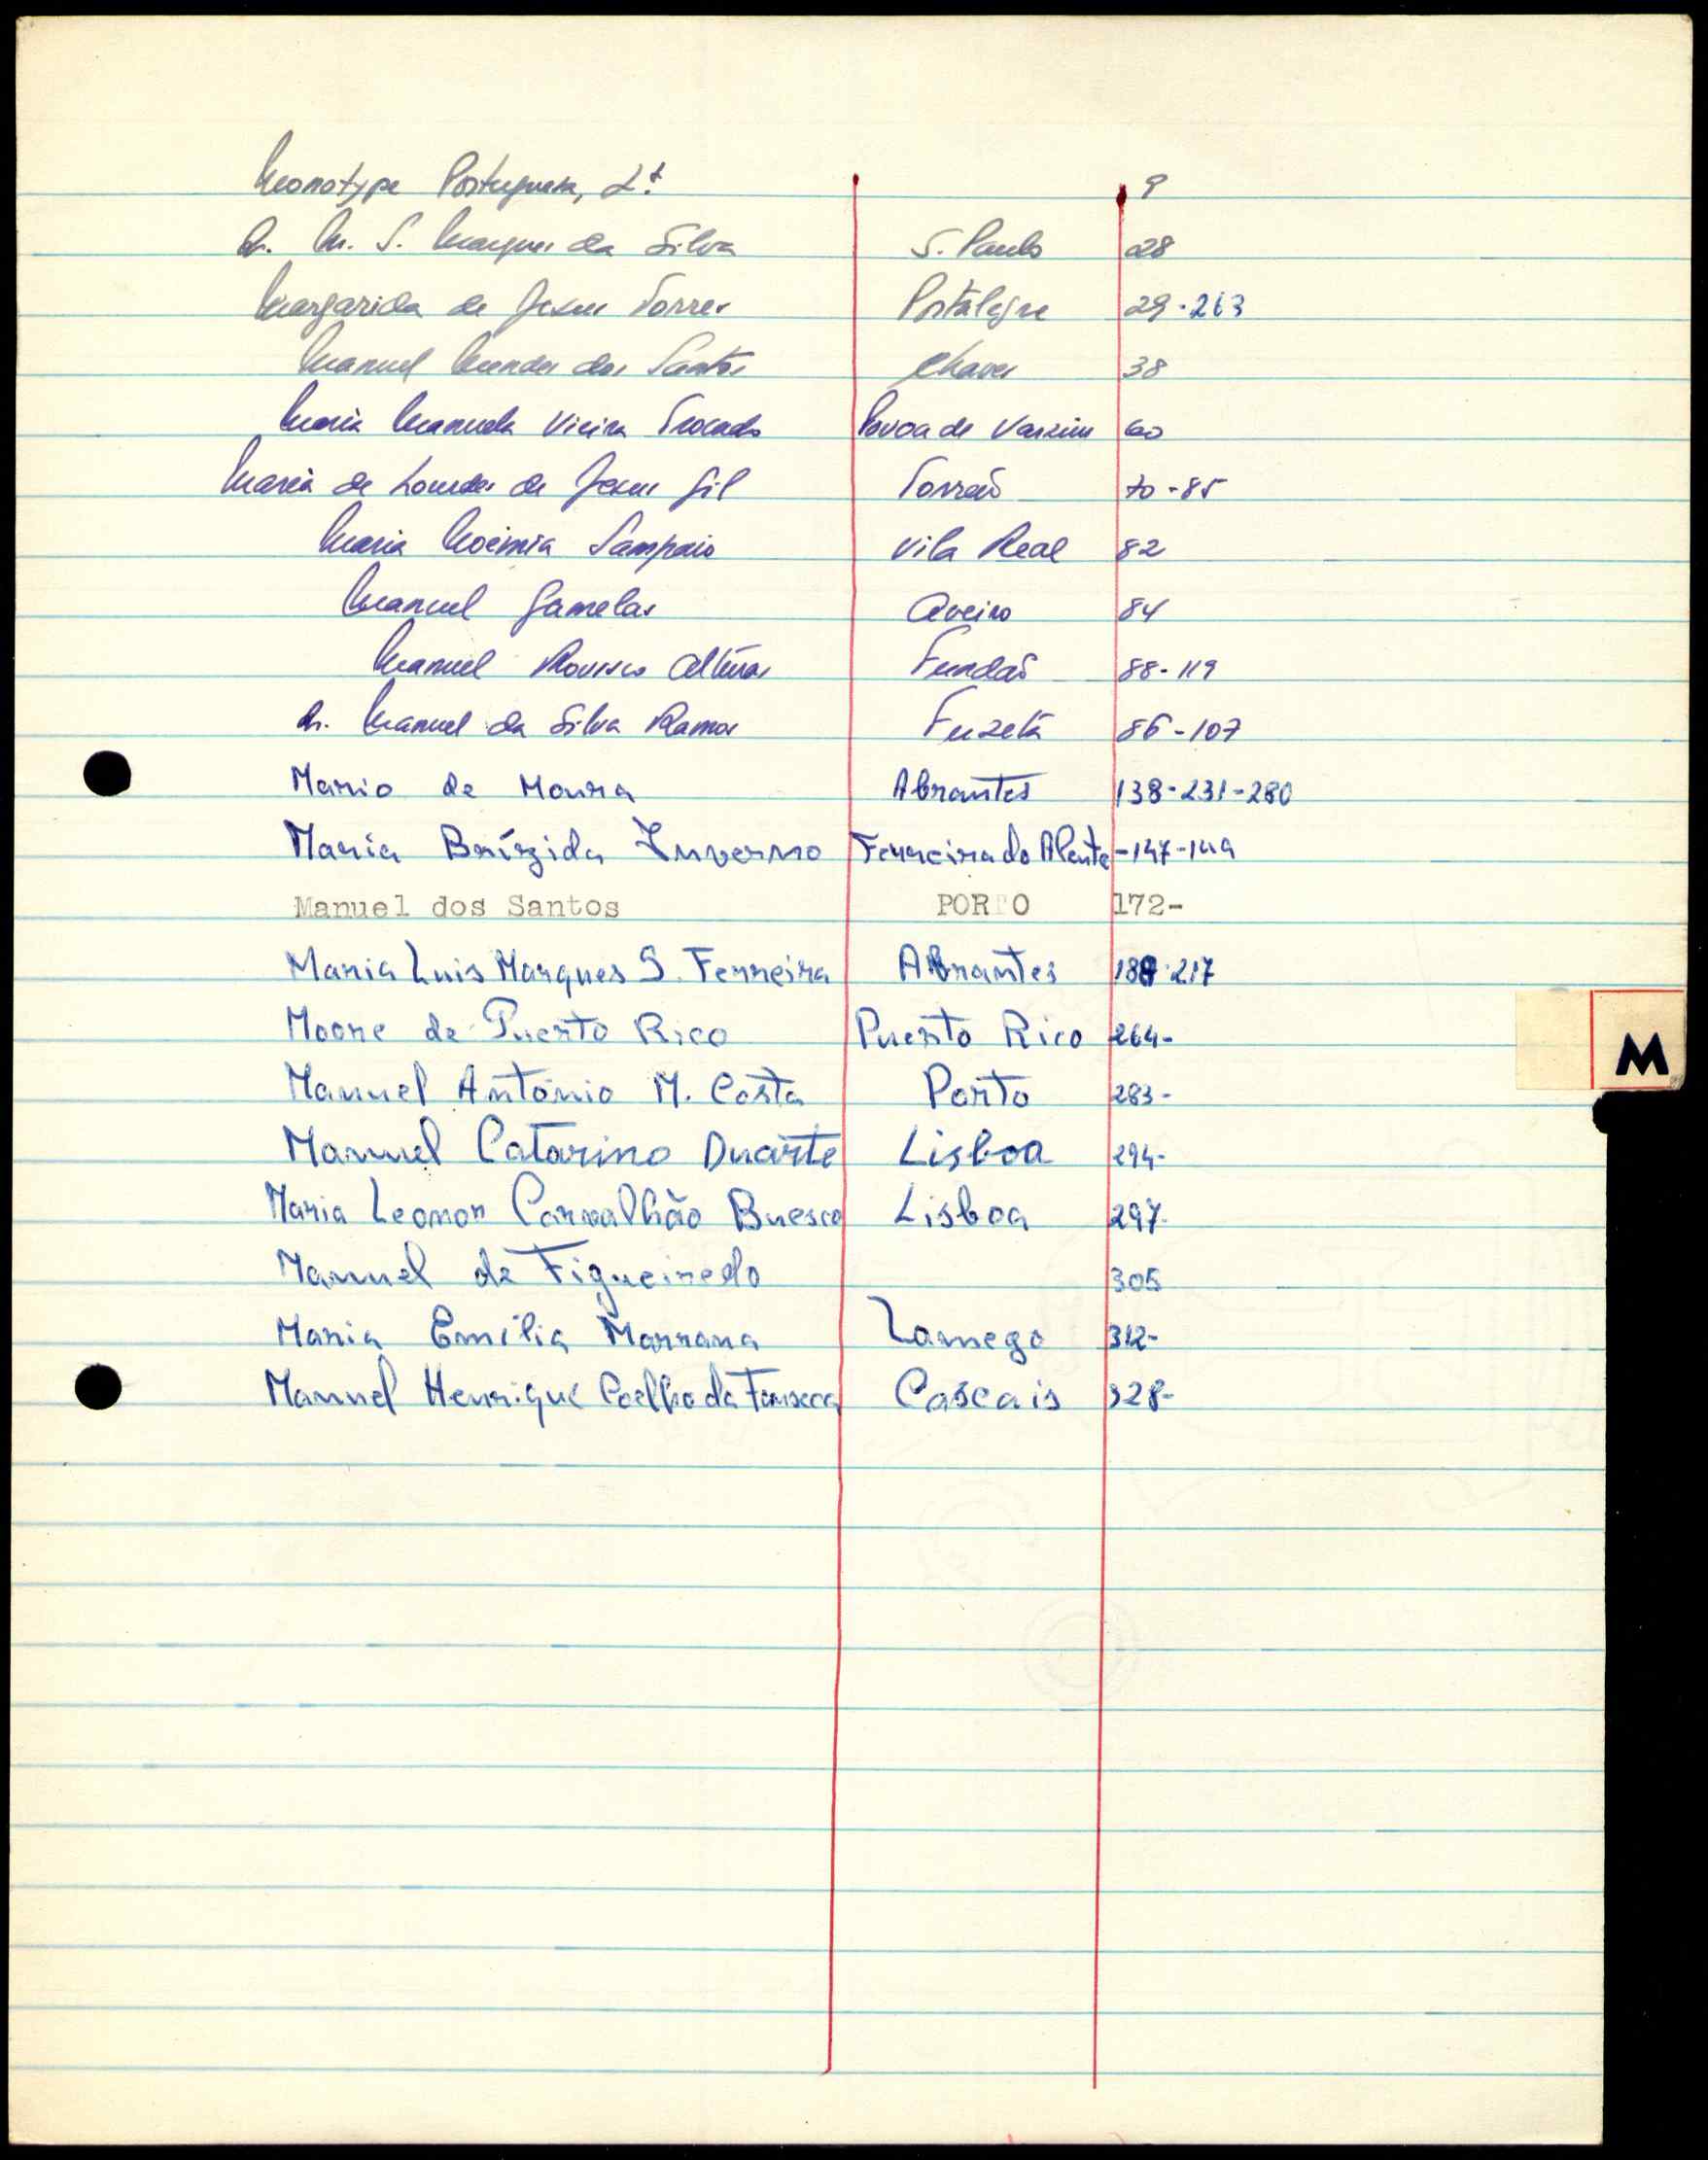 Monotype Portuguesa, Lᵈᵃ 9
Dr. M. S. Marques da Silva S. Paulo 28
Margarida de Jesus Torres Portalegre 29-263
Manuel Mendes dos Santos Chaves 38
Maria Manuela Vieira Trocado Povoa de Varzim 60
Maria de Lourdes de Jesus Gil Torrão 70-85
Maria Noémia Sampaio Vila Real 82
Manuel Gamelas Aveiro 84
Manuel Rouxco Fundão 88-119
Dr. Manuel da Silva Ramos Fuzeta 86-107
Mario de Moura Abrantes 138-231-280
Maria Brízida Inverno Ferreira do Alente -147-149
Manuel dos Santos POR O 172-
Maria Luis Marques S. Ferreira Abrantes 217
Moore de Puerto Rico Puerto Rico 264-
Manuel António M. Costa Porto 283-
Manuel Catarino Duarte Lisboa 294-
Maria Leonor Carvalhão Buesco Lisboa 297-
Manuel de Figueiredo 305
Maria Emília Marrana Lamego 312-
M
Manuel Henrique Coelho da Fonseca Cascais 328-